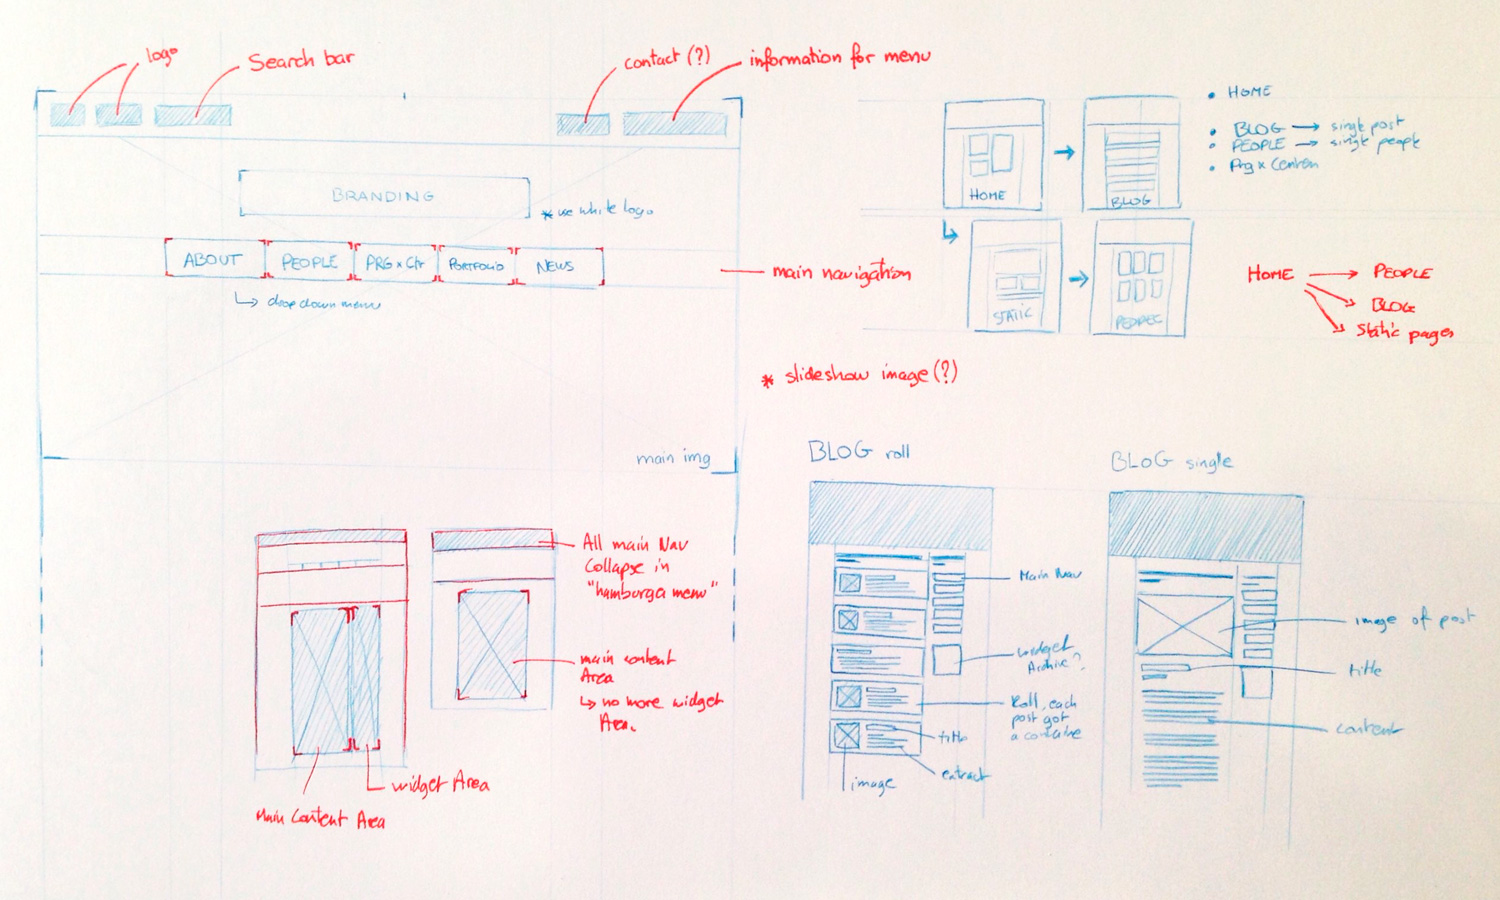 logo
Search bar
contact (?)
information for menu
BRANDING
* use white logo
ABOUT
PEOPLE
PRG x Ctr
PORTFOLIO
NEWS
drop down menu
main navigation
* slideshow image (?)
main img
HOME
BLOG
STATIC
PEOPLE
• HOME
• BLOG → single post
• PEOPLE → single people
• Prg x
HOME → PEOPLE
BLOG
Static pages
All main Nav
Collapse in
"hamburga menu"
main content
Area
↳ no more widget
Area.
widget Area
Main Content Area
BLOG roll
Main Nav
widget
Archive?
Roll, each
post got
a container
title
extract
image
BLOG single
image of post
title
content